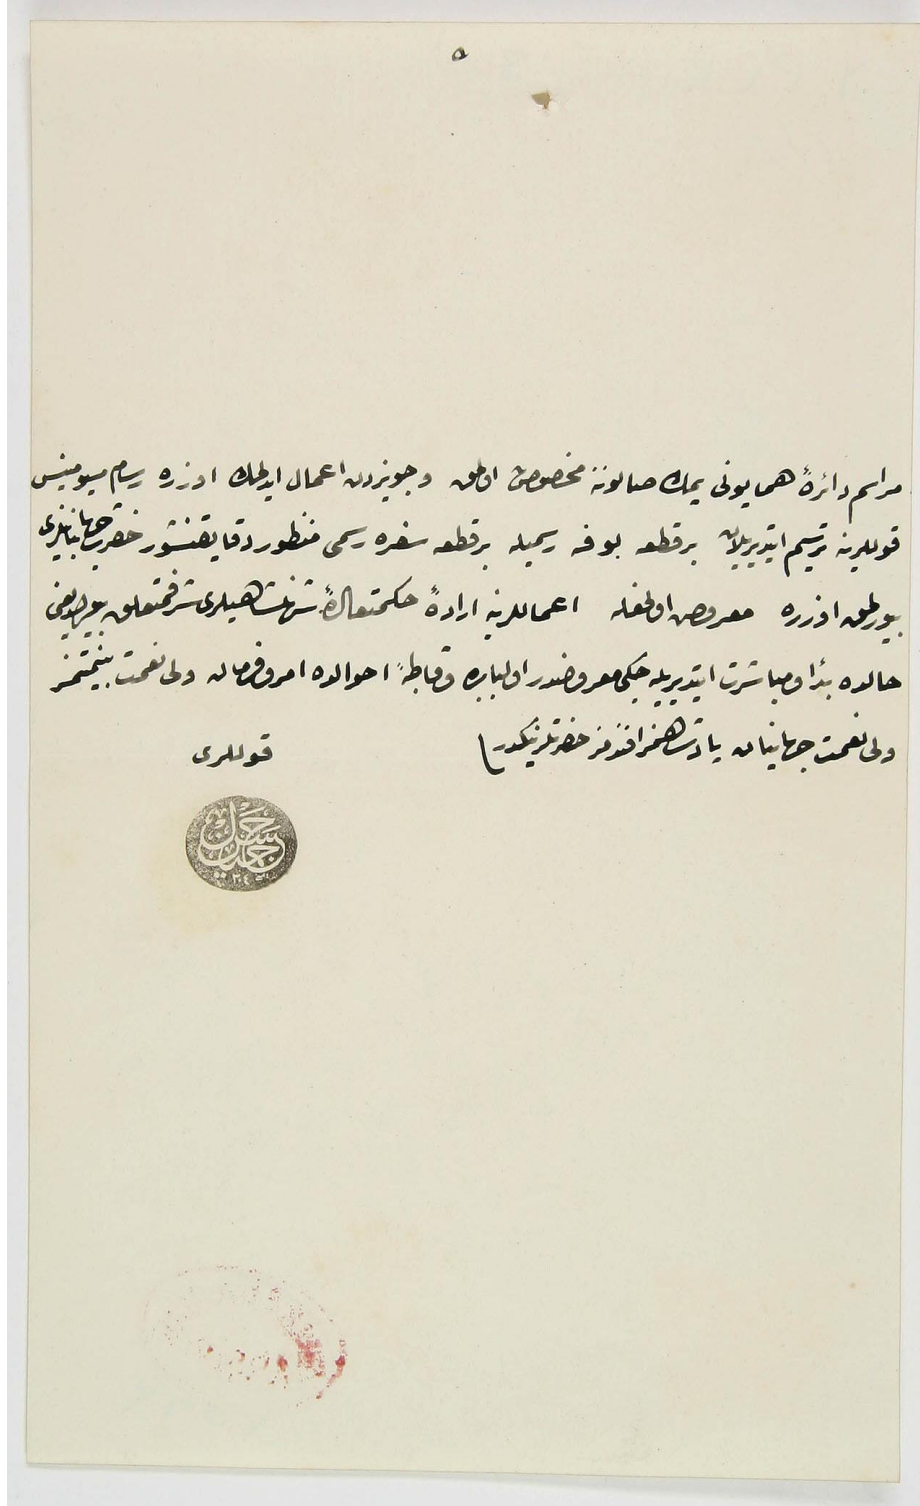 مراسم دائرۀ همایونی یمك صالوننه مخصوص اولمق وجویزدن اعمال ایدلمك اوزره رسام میسو مینس
قوللرینه ترسیم ایتدیریلان بر قطعه بوفه رسمیله بر قطعه سفره رسمی منظور دقایقنشور حضرت جهانبانیلری
بیورلمق اوزره معروض اولمغله اعماللرینه ارادۀ حکمتعادۀ شهنشاهیلری شرفمتعلق بیورلدیغی
حالده بدأ ومباشرت ایتدیریله جکی معروضدر اولبابده وقاطبۀ احوالده امر وفرمان ولی نعمت بیمنتمز
ولی نعمت جهانبان پادشاهمز افندمز حضرتلرینکدر
قوللری